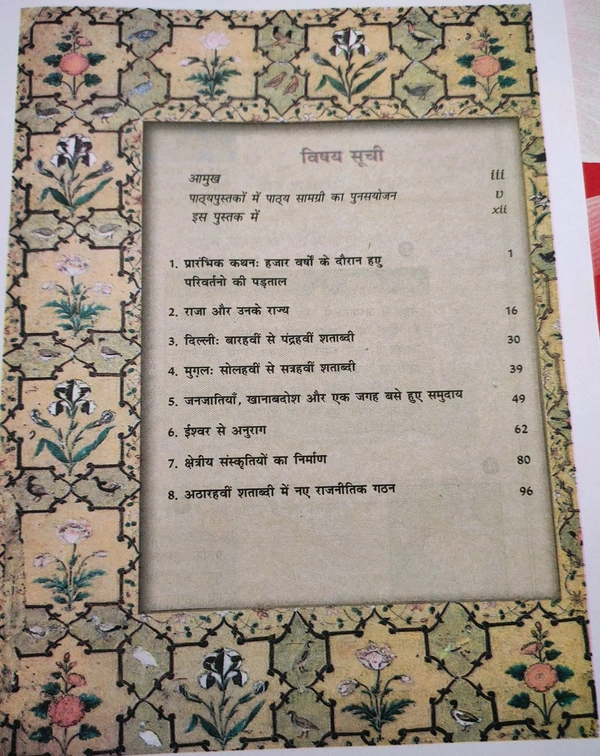 विषय सूची
आमुख iii
पाठ्यपुस्तकों में पाठ्य सामग्री का पुनसयोजन v
इस पुस्तक में xii
1. प्रारंभिक कथनः हजार वर्षों के दौरान हुए 1
परिवर्तनो की पड़ताल
2. राजा और उनके राज्य 16
3. दिल्लीः बारहवीं से पंद्रहवीं शताब्दी 30
4. मुग़लः सोलहवीं से सत्रहवीं शताब्दी 39
5. जनजातियाँ, खानाबदोश और एक जगह बसे हुए समुदाय 49
6. ईश्वर से अनुराग 62
7. क्षेत्रीय संस्कृतियों का निर्माण 80
8. अठारहवीं शताब्दी में नए राजनीतिक गठन 96